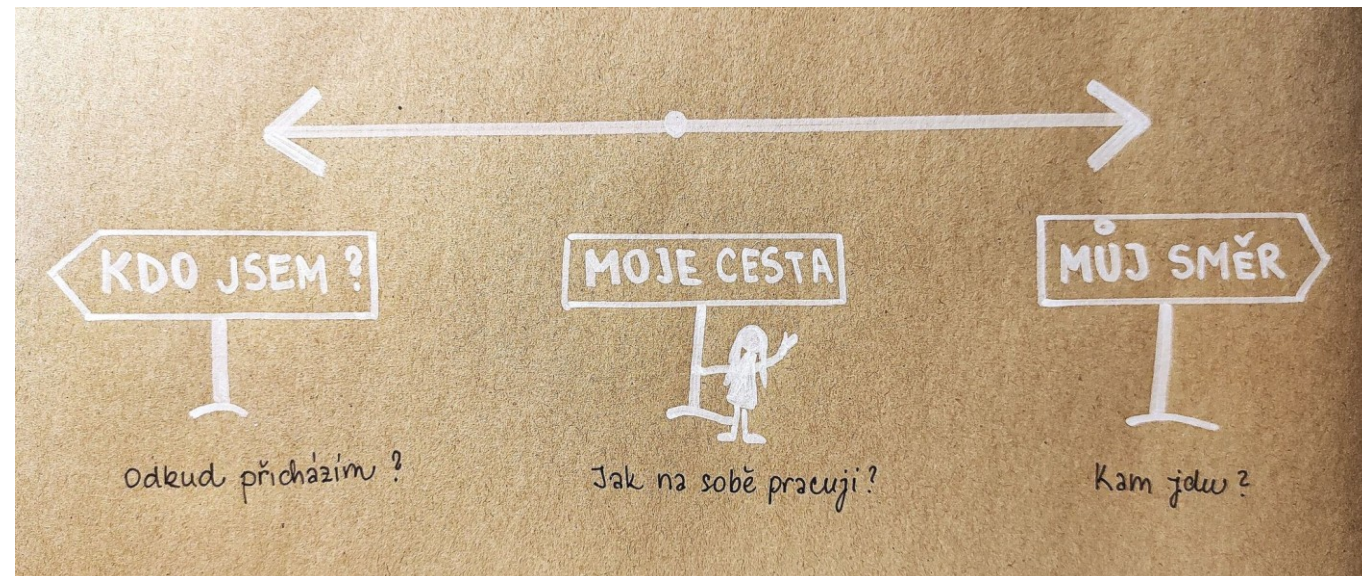 KDO JSEM?
MOJE CESTA
MŮJ SMĚR
Odkud přicházím?
Jak na sobě pracuji?
Kam jdu?